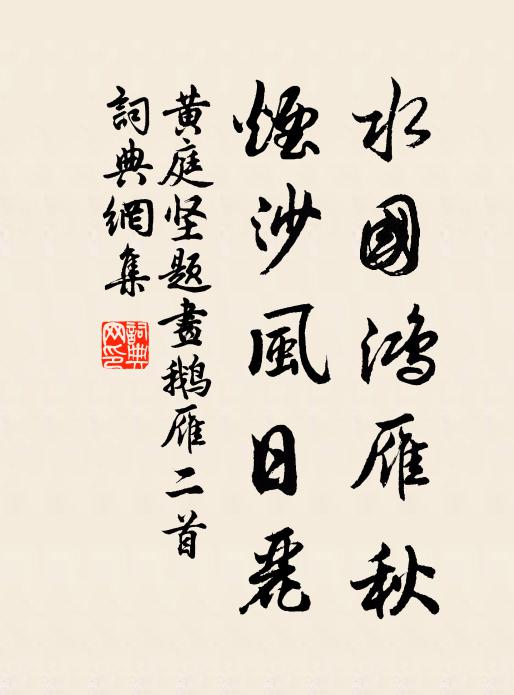 水國鴻雁秋
煙沙風日麗
黄庭坚題畫鵝雁二首
詞典網集
詞典
网印